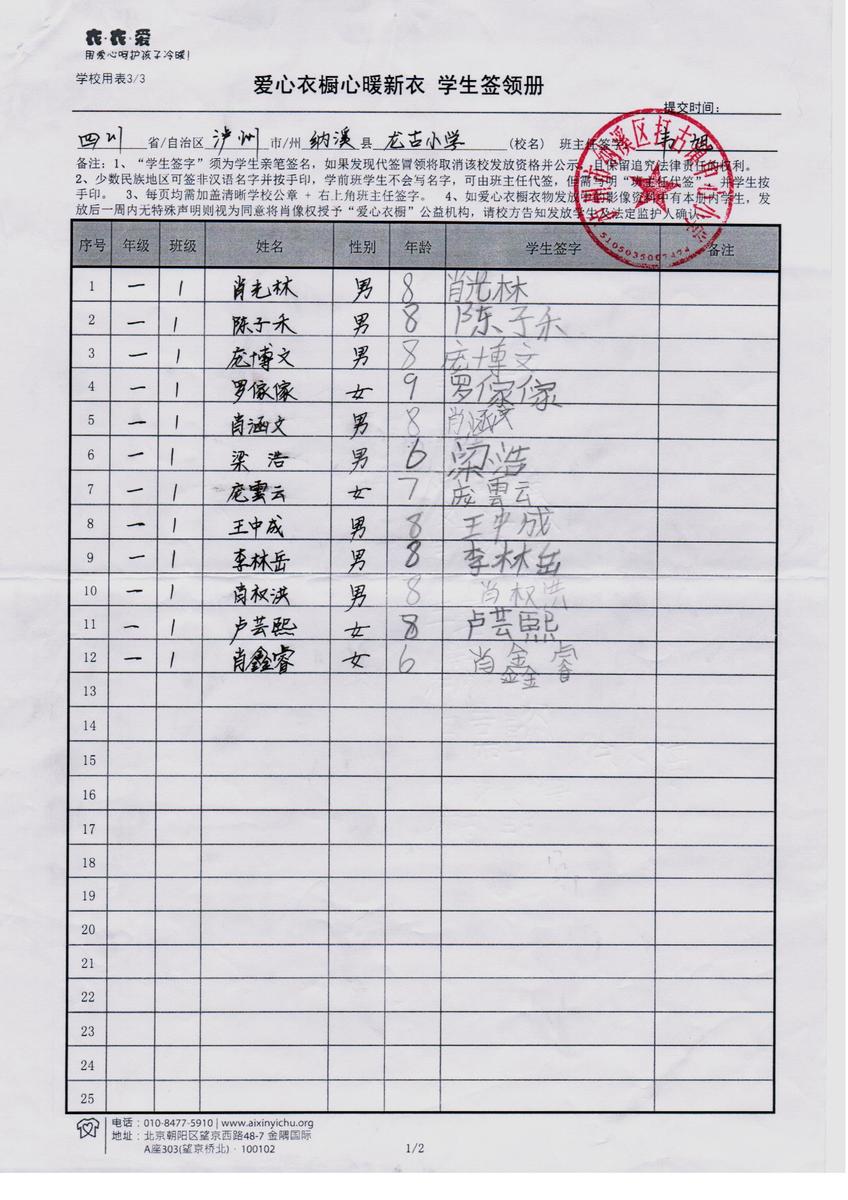 衣·衣·爱
用爱心呵护孩子冷暖!
学校用表3/3
爱心衣橱心暖新衣 学生签领册
提交时间:
四川 省/自治区 泸州 市/州 纳溪 县 龙古小学 (校名) 班主任签字
备注:1、“学生签字”须为学生亲笔签名,如果发现代签冒领将取消该校发放资格并公示,且保留追究法律责任的权利。
2、少数民族地区可签非汉语名字并按手印,学前班学生不会写名字,可由班主任代签,但需写明“班主任代签”,并学生按
手印。 3、每页均需加盖清晰学校公章 + 右上角班主任签字。 4、如爱心衣橱衣物发放中的影像资料中有本册内学生,发
放后一周内无特殊声明则视为同意将肖像权授予“爱心衣橱”公益机构,请校方告知发放学生及法定监护人确认。
5105035007474
序号 年级 班级 姓名 性别 年龄 学生签字 备注
1 一 1 肖光林 男 8 肖光林
2 一 1 陈子禾 男 8 陈子禾
3 一 1 庞博文 男 8 庞博文
4 一 1 罗傢傢 女 9 罗傢傢
5 一 1 肖涵文 男 8 肖涵文
6 一 1 梁浩 男 6 梁浩
7 一 1 庞雲云 女 7 庞雲云
8 一 1 王中成 男 8 王中成
9 一 1 李林岳 男 8 李林岳
10 一 1 肖权洪 男 8 肖权洪
11 一 1 卢芸熙 女 8 卢芸熙
12 一 1 肖鑫睿 女 6 肖鑫睿
13
14
15
16
17
18
19
20
21
22
23
24
25
电话:010-8477-5910 | www.aixinyichu.org
地址:北京朝阳区望京西路48-7 金隅国际
A座303(望京桥北)· 100102
1/2